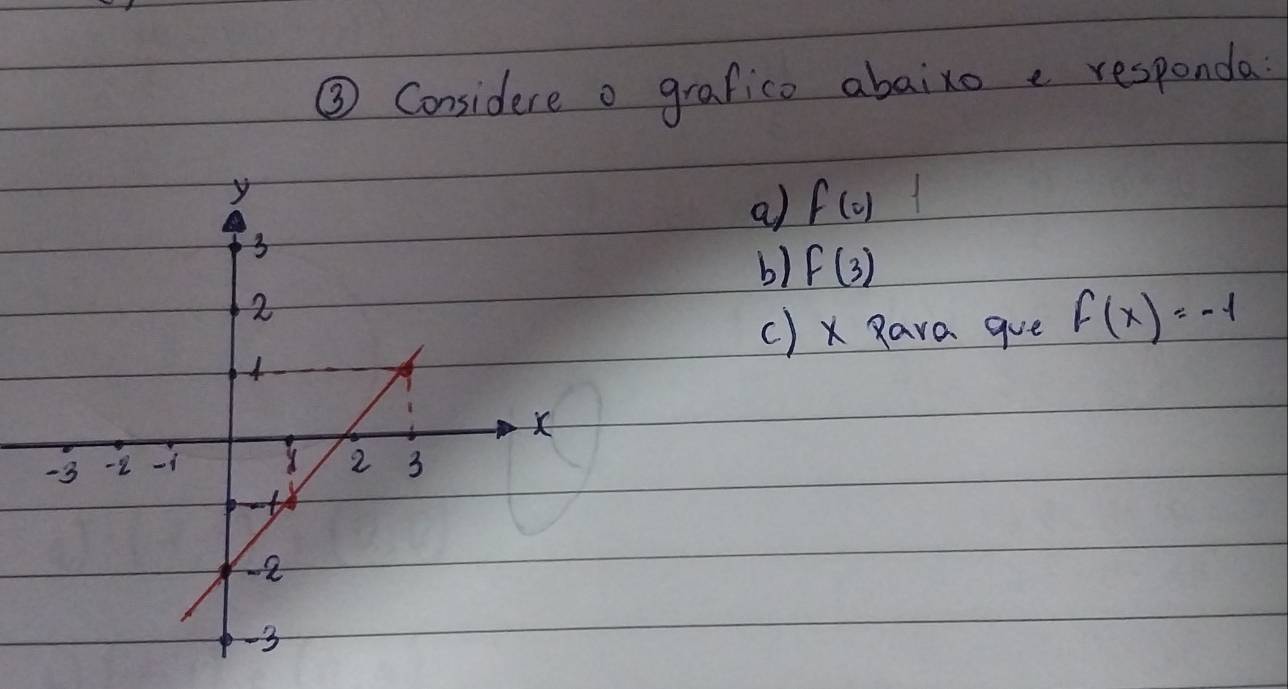 ③ Considere o grafico abaixo e responda:
y
3
2
1
x
-3 -2 -1 1 2 3
-1
-2
-3
a) f(0)
b) f(3)
c) x para que f(x) = -1